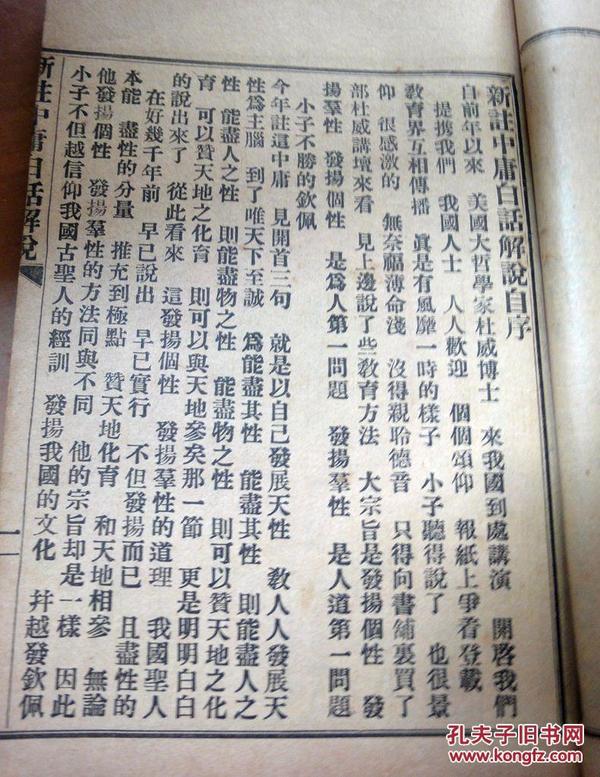 新註中庸白話解說自序
自前年以來 美國大哲學家杜威博士 來我國到處講演 開啓我們
提携我們 我國人士 人人歡迎 個個頌仰 報紙上爭着登載
敎育界互相傳播 眞是有風靡一時的樣子 小子聽得說了 也很景
仰 很感激的 無奈福薄命淺 沒得親聆德音 只得向書舖裏買了
部杜威講壇來看 見上邊說了些敎育方法 大宗旨是發揚個性 發
揚羣性 發揚個性 是爲人第一問題 發揚羣性 是人道第一問題
小子不勝的欽佩
今年註這中庸 見開首三句 就是以自己發展天性 敎人人發展天
性爲主腦 到了唯天下至誠 爲能盡其性 能盡其性 則能盡人之
性 能盡人之性 則能盡物之性 能盡物之性 則可以贊天地之化
育 可以贊天地之化育 則可以與天地參矣那一節 更是明明白白
的說出來了 從此看來 這發揚個性 發揚羣性的道理 我國聖人
在好幾千年前 早已說出 早已實行 不但發揚而已 且盡性的
本能 盡性的分量 推充到極點 贊天地化育 和天地相參 無論
他發揚個性 發揚羣性的方法同與不同 他的宗旨却是一樣 因此
小子不但越信仰我國古聖人的經訓 發揚我國的文化 幷越發欽佩
新註中庸白話解說
一
孔夫子旧书网
www.kongfz.com